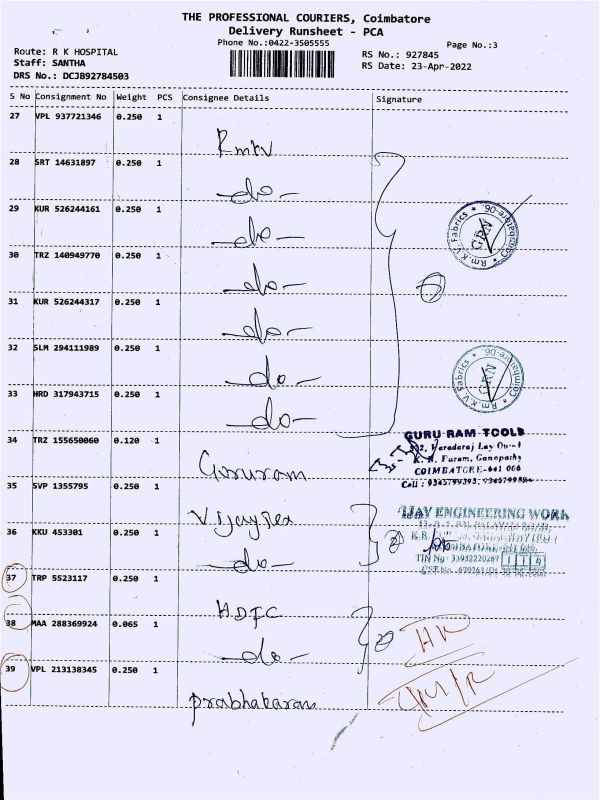 THE PROFESSIONAL COURIERS, Coimbatore
Delivery Runsheet - PCA
Phone No.:0422-3505555
Page No.:3
Route: R K HOSPITAL
Staff: SANTHA
DRS No.: DCJB92784503
RS No.: 927845
RS Date: 23-Apr-2022
S No Consignment No Weight PCS Consignee Details Signature
27 VPL 937721346 0.250 1
Rmkv
28 SRT 14631897 0.250 1
-do-
29 KUR 526244161 0.250 1
-do-
Rm.K.V. Fabrics * Coimbatore-06. *
30 TRZ 140949770 0.250 1
-do-
31 KUR 526244317 0.250 1
-do-
32 SLM 294111989 0.250 1
-do-
Rm.K.V. Fabrics * Coimbatore-06. *
33 HRD 317943715 0.250 1
-do-
34 TRZ 155650060 0.120 1
Gururam
GURU RAM TOOLS
K. R. Puram, Ganapathy
COIMBATORE-641 006
Cell : 9345799393,
35 SVP 1355795 0.250 1
Vijaytex
36 KKU 453301 0.250 1
-do-
ENGINEERING WORK
TIN No
37 TRP 5523117 0.250 1
HDFC
38 MAA 288369924 0.065 1
-do-
39 VPL 213138345 0.250 1
Prabhakaran